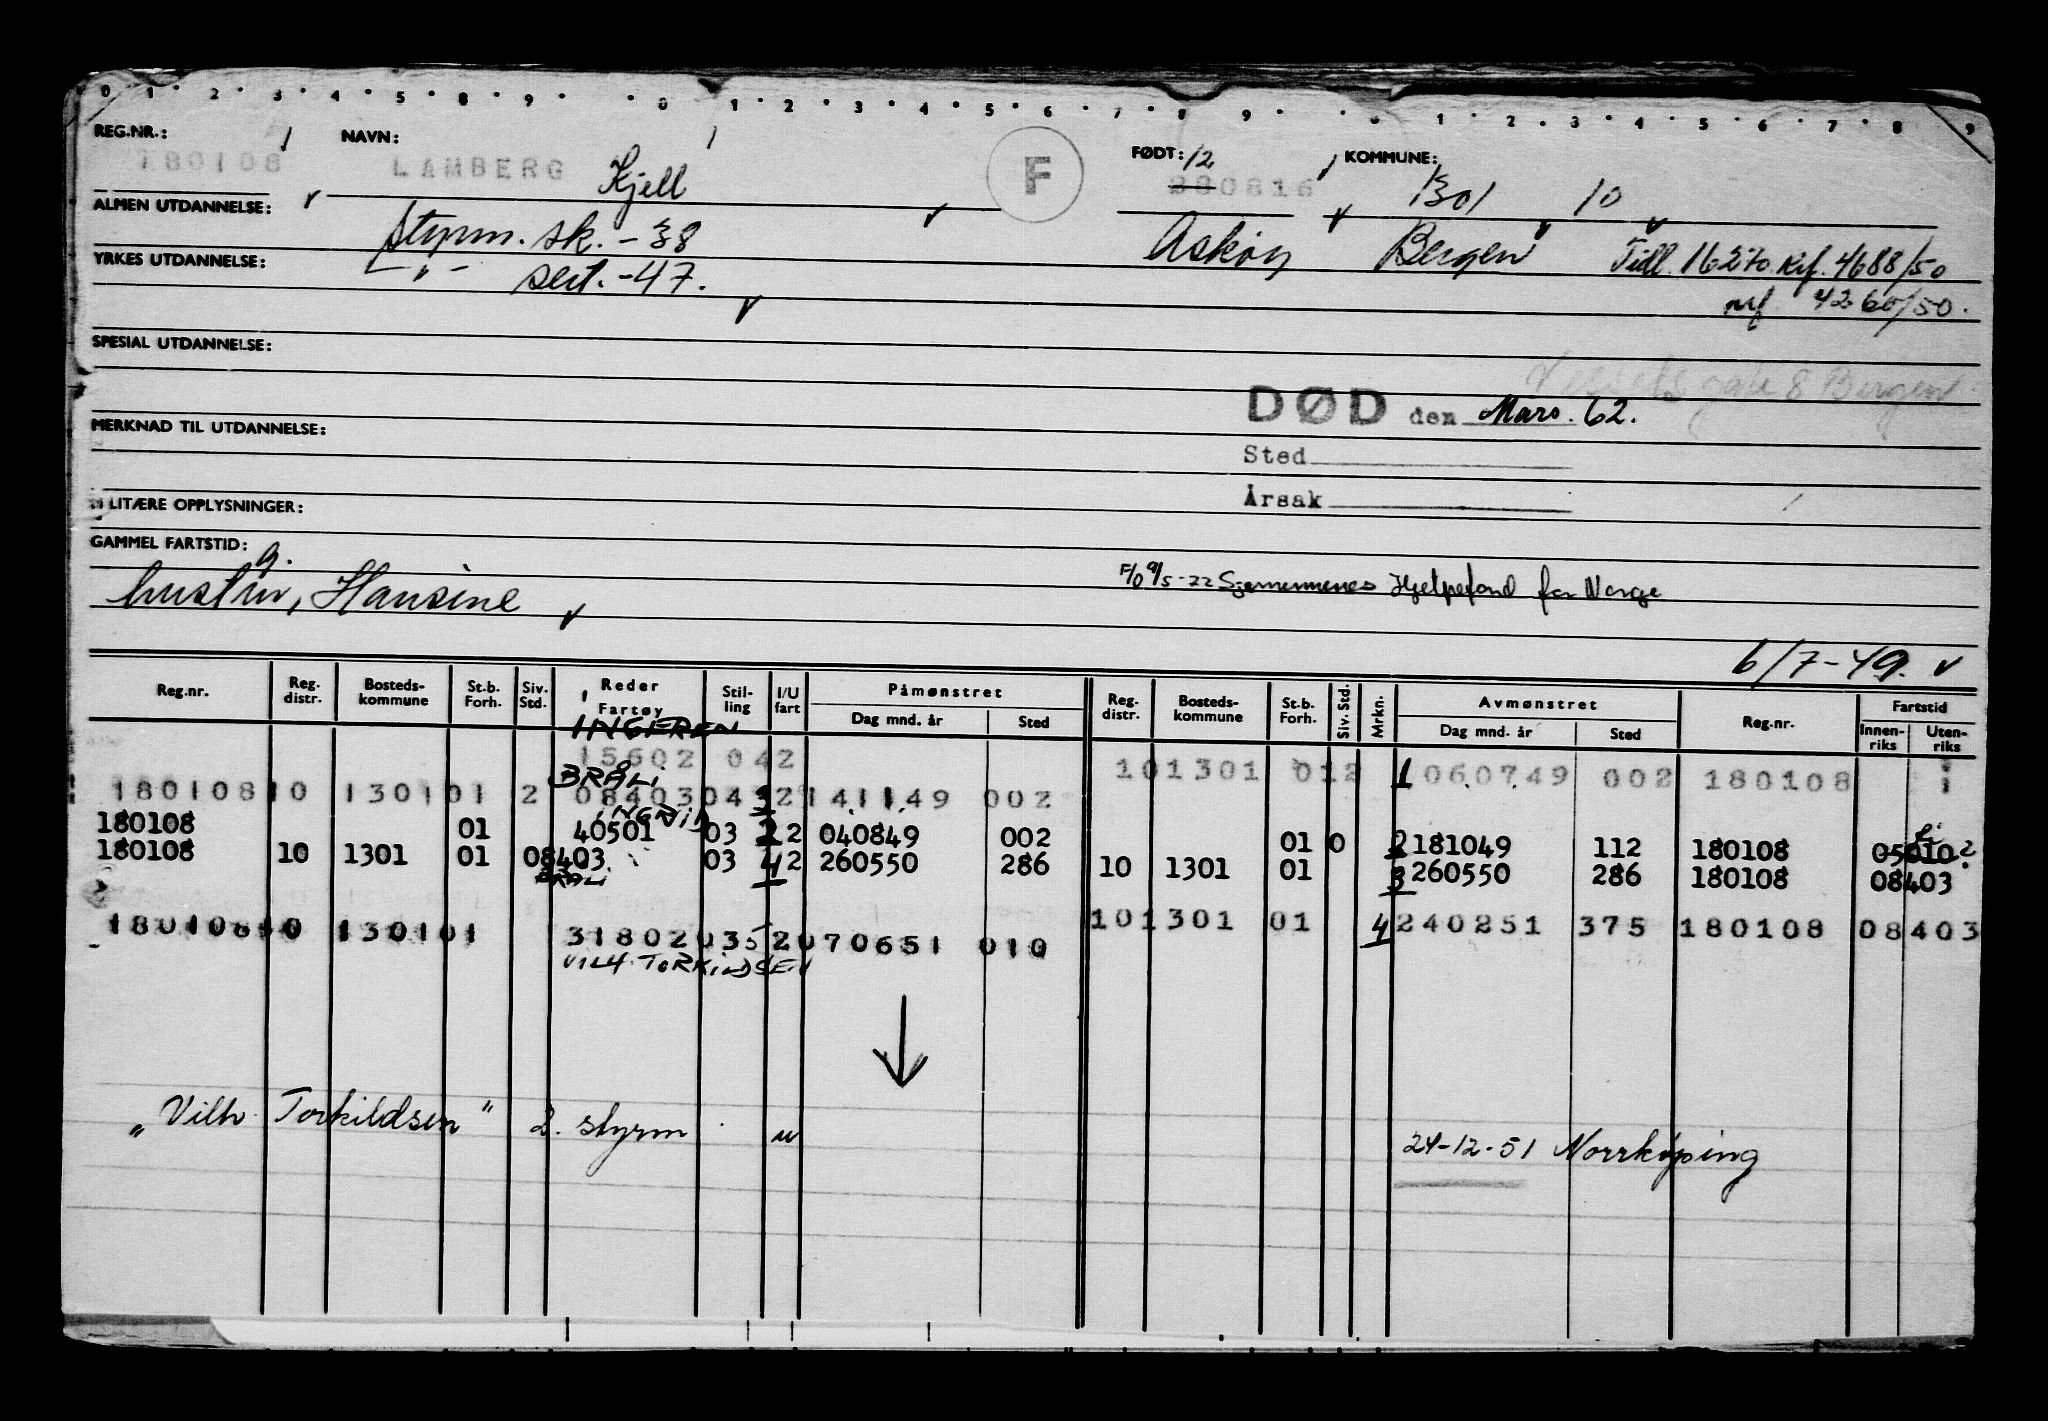 0 1 2 3 4 5 8 9 0 1 2 3 4 5 6 7 8 9 0 1 2 3 4 5 6 7 8 9
REG.NR.: NAVN: FØDT: 12 KOMMUNE:
180108 LAMBERG Kjell F 280816 1301 10
ALMEN UTDANNELSE: Styrm. sk. -38 Askøy Bergen Tidl. 16270 Krf. 4688/50
YRKES UTDANNELSE: -"- sert. -47.
mf 4260/50.
SPESIAL UTDANNELSE:
gate 8 Bergen
DØD den Mars. 62.
MERKNAD TIL UTDANNELSE:
Sted
Årsak
LITÆRE OPPLYSNINGER:
GAMMEL FARTSTID: g.
hustru, Hansine F/O 9/5-22 Sjømennenes Hjelpefond for Norge
6/7-49.
Reg.nr. Reg. distr. Bosteds-kommune St.b. Forh. Siv. Std. Reder Fartøy Stil-ling I/U fart Påmønstret Dag mnd. år Sted Reg. distr. Bosteds-kommune St.b. Forh. Siv. Std. Mrkn. Avmønstret Dag mnd. år Sted Reg.nr. Fartstid Innen-riks Uten-riks
INGEREN
15602 042 101301 012 1 060749 002 180108 1
BRÅLI
180108 10 1301 01 2 08403 04 3 2 141149 002
INGRID
180108 01 40501 03 2 2 040849 002 01 0 2 181049 112 180108 05010 2
180108 10 1301 01 08403 03 4 2 260550 286 10 1301 01 3 260550 286 180108 08403
BRÅLI
101301 01 4 240251 375 180108 08403
180108 10 1301 01 31802 035 2 070651 010
VILH. TORKILDSEN
"Vilh. Torkildsen" 2. styrm u
24-12-51 Norrköping